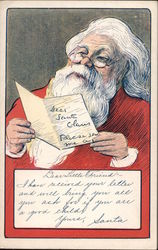 Dear
Santa
Claus
Please
me a
Dear Little Friend
I have received your letter
and will bring you all
you ask for if you are
a good child.
Yours, Santa